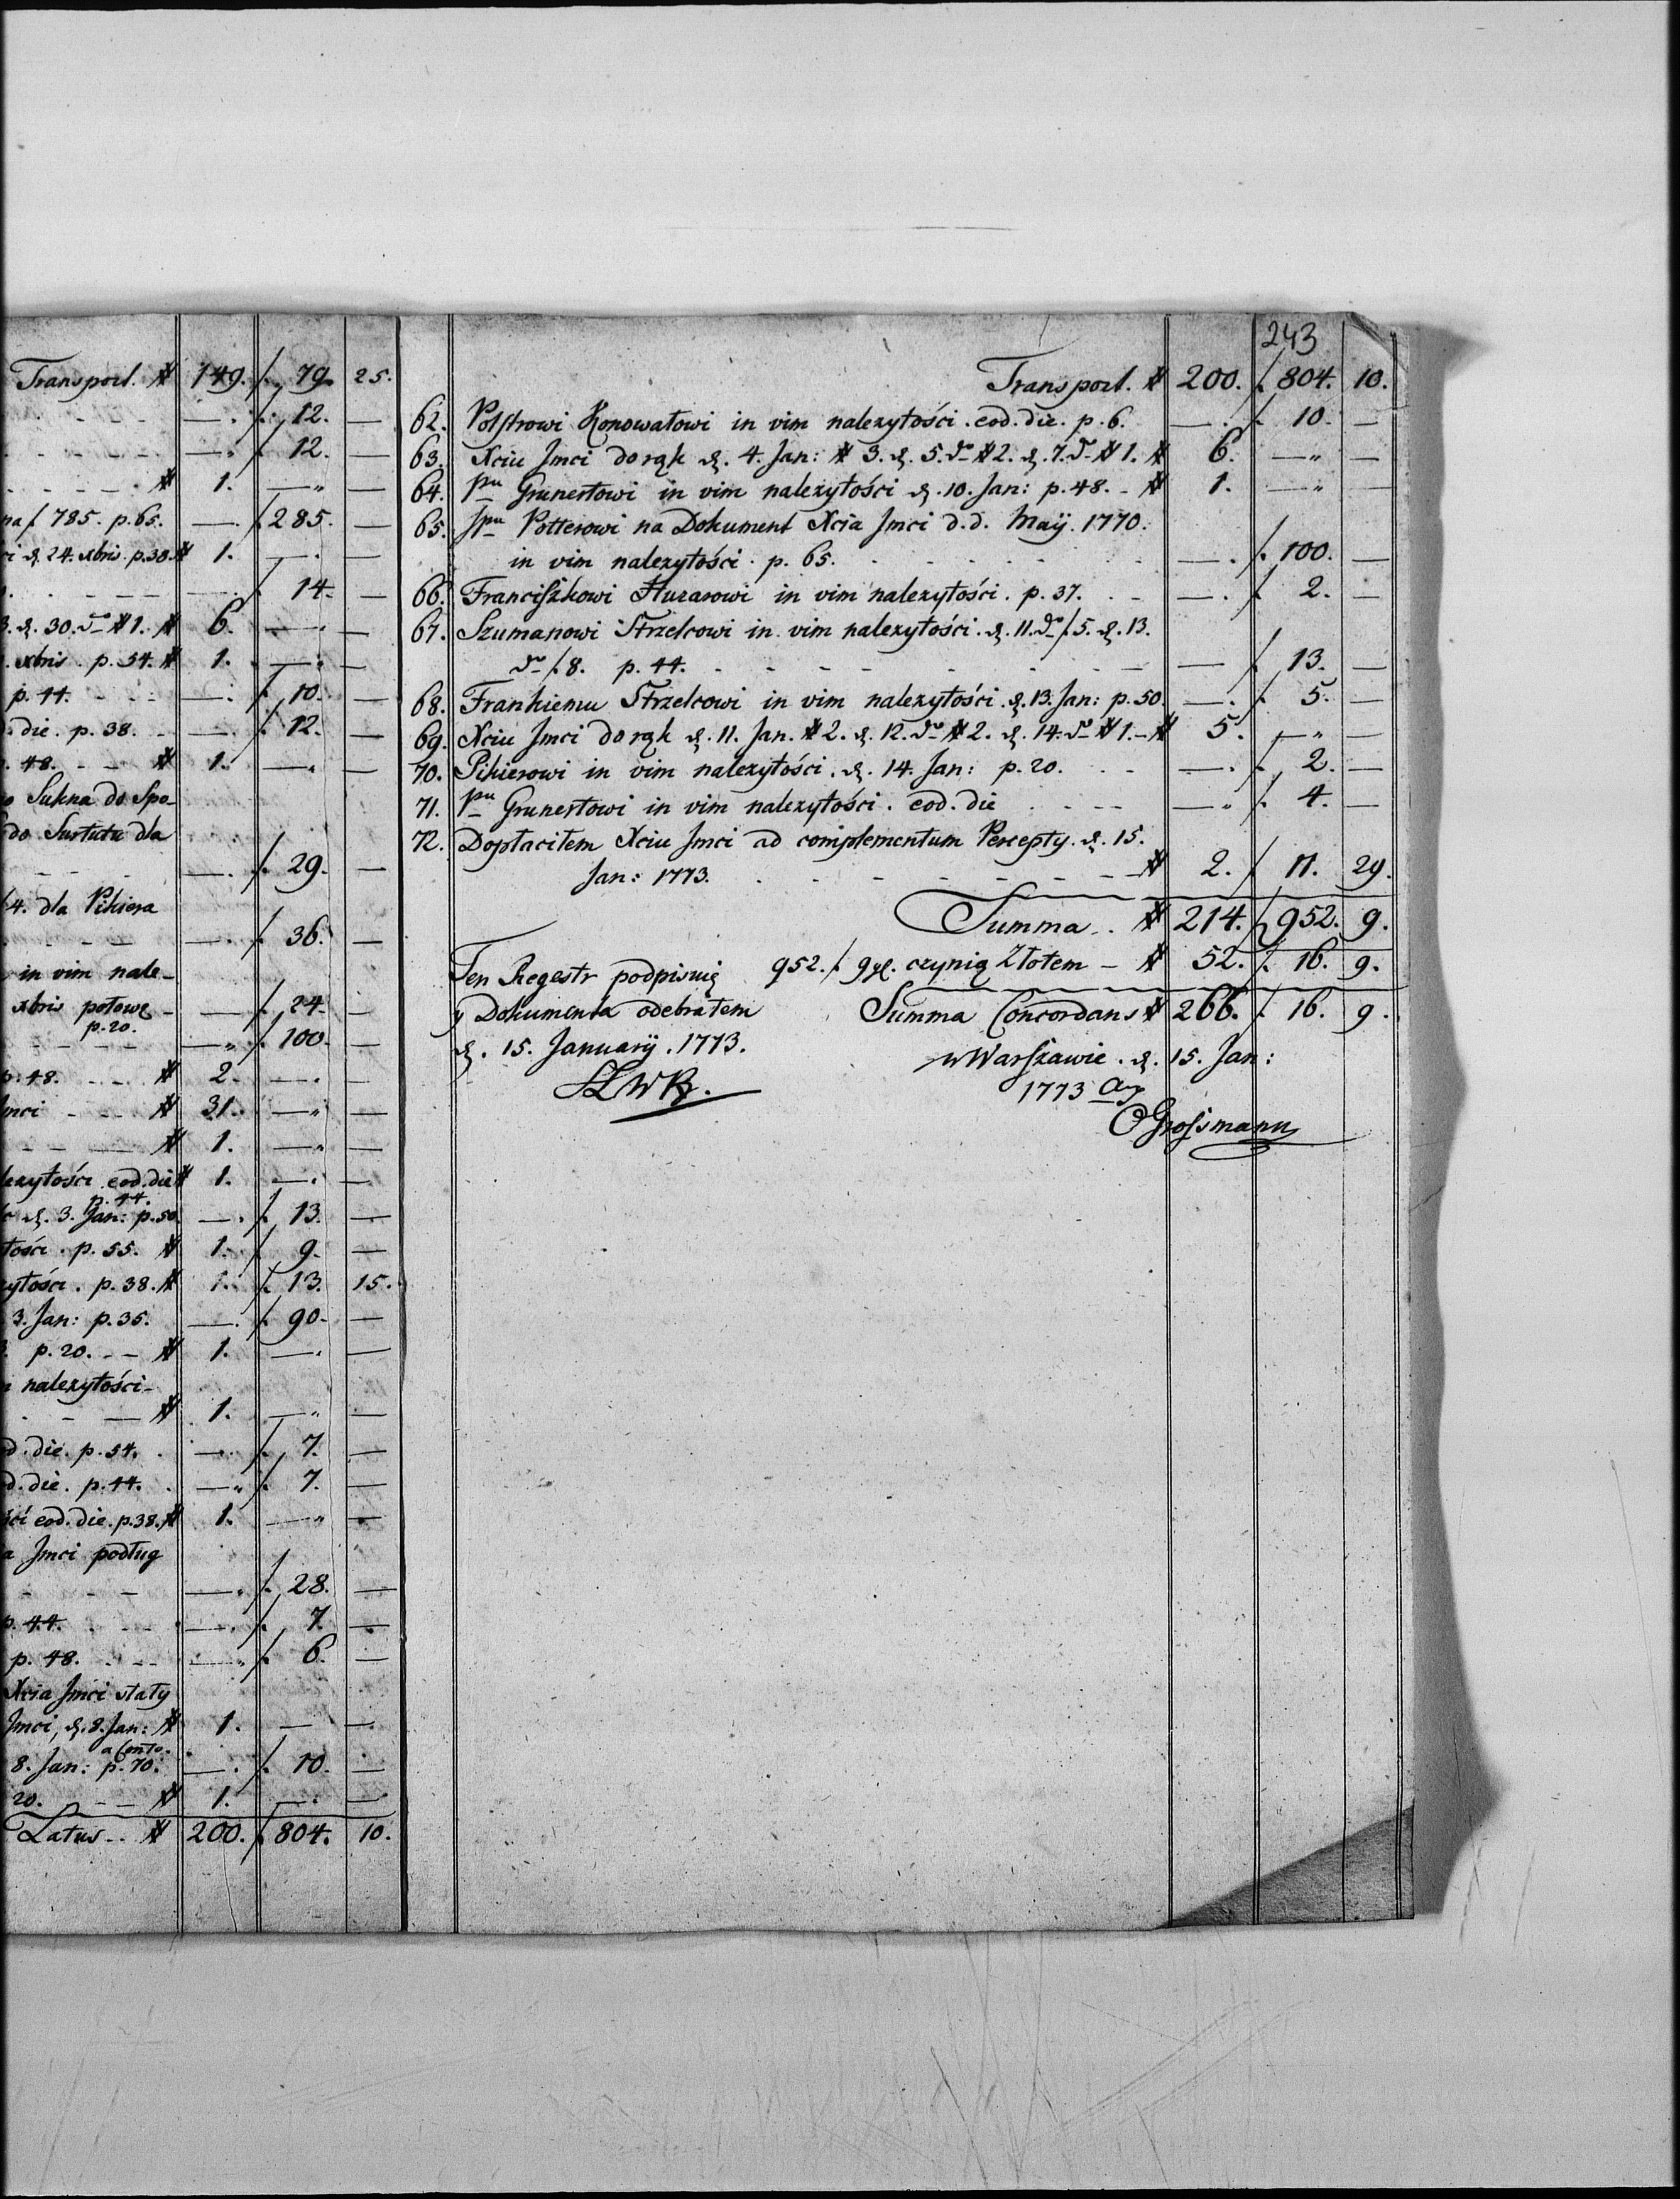 Transport. # 149. f. 79. 25.
— . f. 12. —
— . f. 12. —
# 1. — —
na f 785. p. 65. — . f 285. —
ci d. 24. xbris. p. 38. # 1. — . —
— . f. 14. —
3. d. 30. do # 1. # 6. — —
xbris. p. 54. # 1. — —
p. 44. — . f. 10. —
die. p. 38. — . f. 12. —
48. # 1. — —
o Sukna do Spo-
do Surtutu dla
— . f. 29. —
4. dla Pikiera
— . f. 36. —
in vim nale-
xbris połowę — f. 24. —
p. 20. — f. 100. —
p. 48. # 2. — . —
Jmci # 31. — —
# 1. — —
lezytości eod. die # 1. — . —
p. 44.
d. 3. Jan: p. 50. — . f. 13. —
tości. p. 55. # 1. f. 9. —
zytości. p. 38. # 1. f. 13. 15.
3. Jan: p. 35. — . f. 90. —
p. 20. # 1. — . —
nalezytości-
# 1. — —
d. die. p. 54. — . f. 7. —
d. die. p. 44. — f. 7. —
ści eod. die. p. 38. # 1. — —
a Jmci podług
— . f. 28. —
p. 44. — . f. 7. —
p. 48. — . f. 6. —
Xcia Jmci stały
Jmci, d. 8. Jan: # 1. — —
a Conto.
8. Jan: p. 70. — . f. 10. —
20. # 1. — . —
Latus # 200. f. 804. 10.
243
Transport. # 200. f. 804. 10.
62. Polstrowi Konowałowi in vim nalezytości. eod. die. p. 6. — . f. 10. —
63. Xciu Jmci do rąk d. 4. Jan: # 3. d. 5. do # 2. d. 7. do # 1. # 6. — —
64. Pnu Grunertowi in vim nalezytości d. 10. Jan: p. 48. # 1. — —
65. Jpnu Potterowi na Dokument Xcia Jmci d. d. Maÿ. 1770.
in vim nalezytości. p. 65. — . f. 100. —
66. Franciszkowi Huzarowi in vim nalezytości. p. 37. — . f. 2. —
67. Szumanowi Strzelcowi in vim nalezytości. d. 11. do f. 5. d. 13.
do f. 8. p. 44. — f. 13. —
68. Frankiemu Strzelcowi in vim nalezytości. d. 13. Jan: p. 50. — . f. 5. —
69. Xciu Jmci do rąk d. 11. Jan. # 2. d. 12. do # 2. d. 14. do # 1. — # 5. — —
70. Pikierowi in vim nalezytości. d. 14. Jan: p. 20. — . f. 2. —
71. Pnu Grunertowi in vim nalezytości. eod. die — f. 4. —
72. Dopłaciłem Xciu Jmci ad complementum Percepty. d. 15.
Jan: 1773. — # 2. f. 11. 29.
Summa # 214. f 952. 9.
Ten Regestr podpisuię 952. f. 9 gl. czynią Złotem — # 52. f. 16. 9.
y Dokumenta odebrałem Summa Concordans # 266. f. 16. 9.
d. 15. Januarÿ. 1773. w Warszawie. d. 15. Jan:
1773
Grossmann